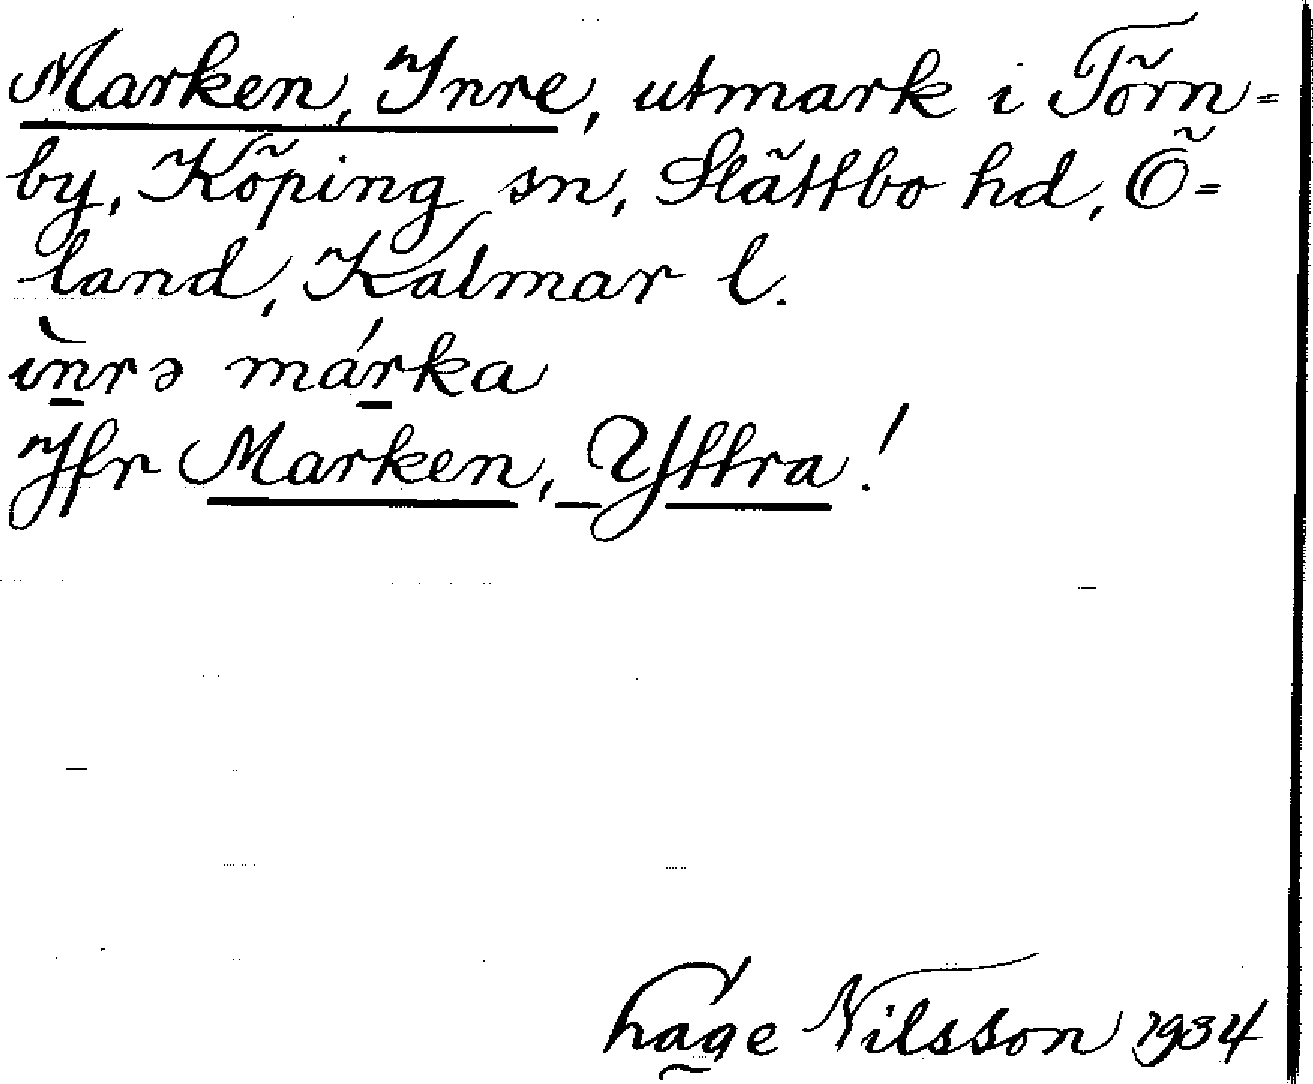 Marken, Inre, utmark i Törn=
by, Köping sn, Slättbo hd, Ö=
land, Kalmar l.
ìnrə márka
Jfr Marken, Yttra!
Hage Nilsson 1934